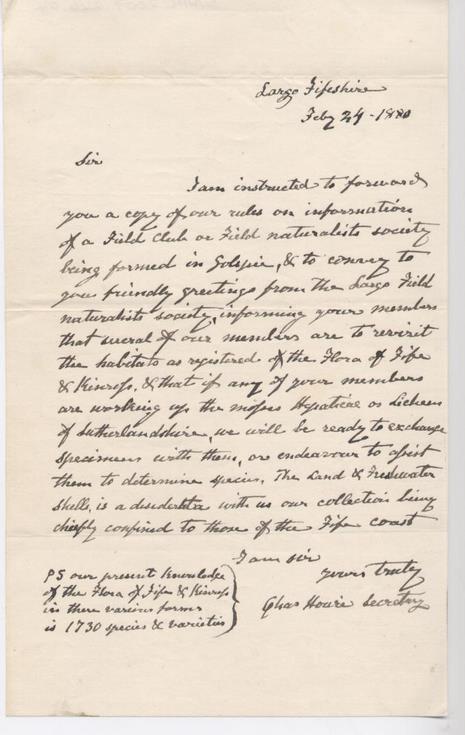 Largo Fifeshire
Feby 24 - 1880
Sir
I am instructed to forward
you a copy of our rules on information
of a Field Club or Field naturalists society
being formed in Golspie, & to convey to
you friendly greetings from the Largo Field
naturalists society, informing your members
that several of our members are to revisit
the habitats as registered of the Flora of Fife
& Kinross, & that if any of your members
are working up the mosses Hepaticae or Lichens
of Sutherlandshire, we will be ready to exchange
specimens with them, or endeavour to assist
them to determine species. The Land & Freshwater
shells, is a desiderata with us our collection being
chiefly confined to those of the Fife coast
I am sir
yours truly
Chas Howie Secretary
PS our present knowledge
of the Flora of Fife & Kinross
in there various forms
is 1730 species & varieties